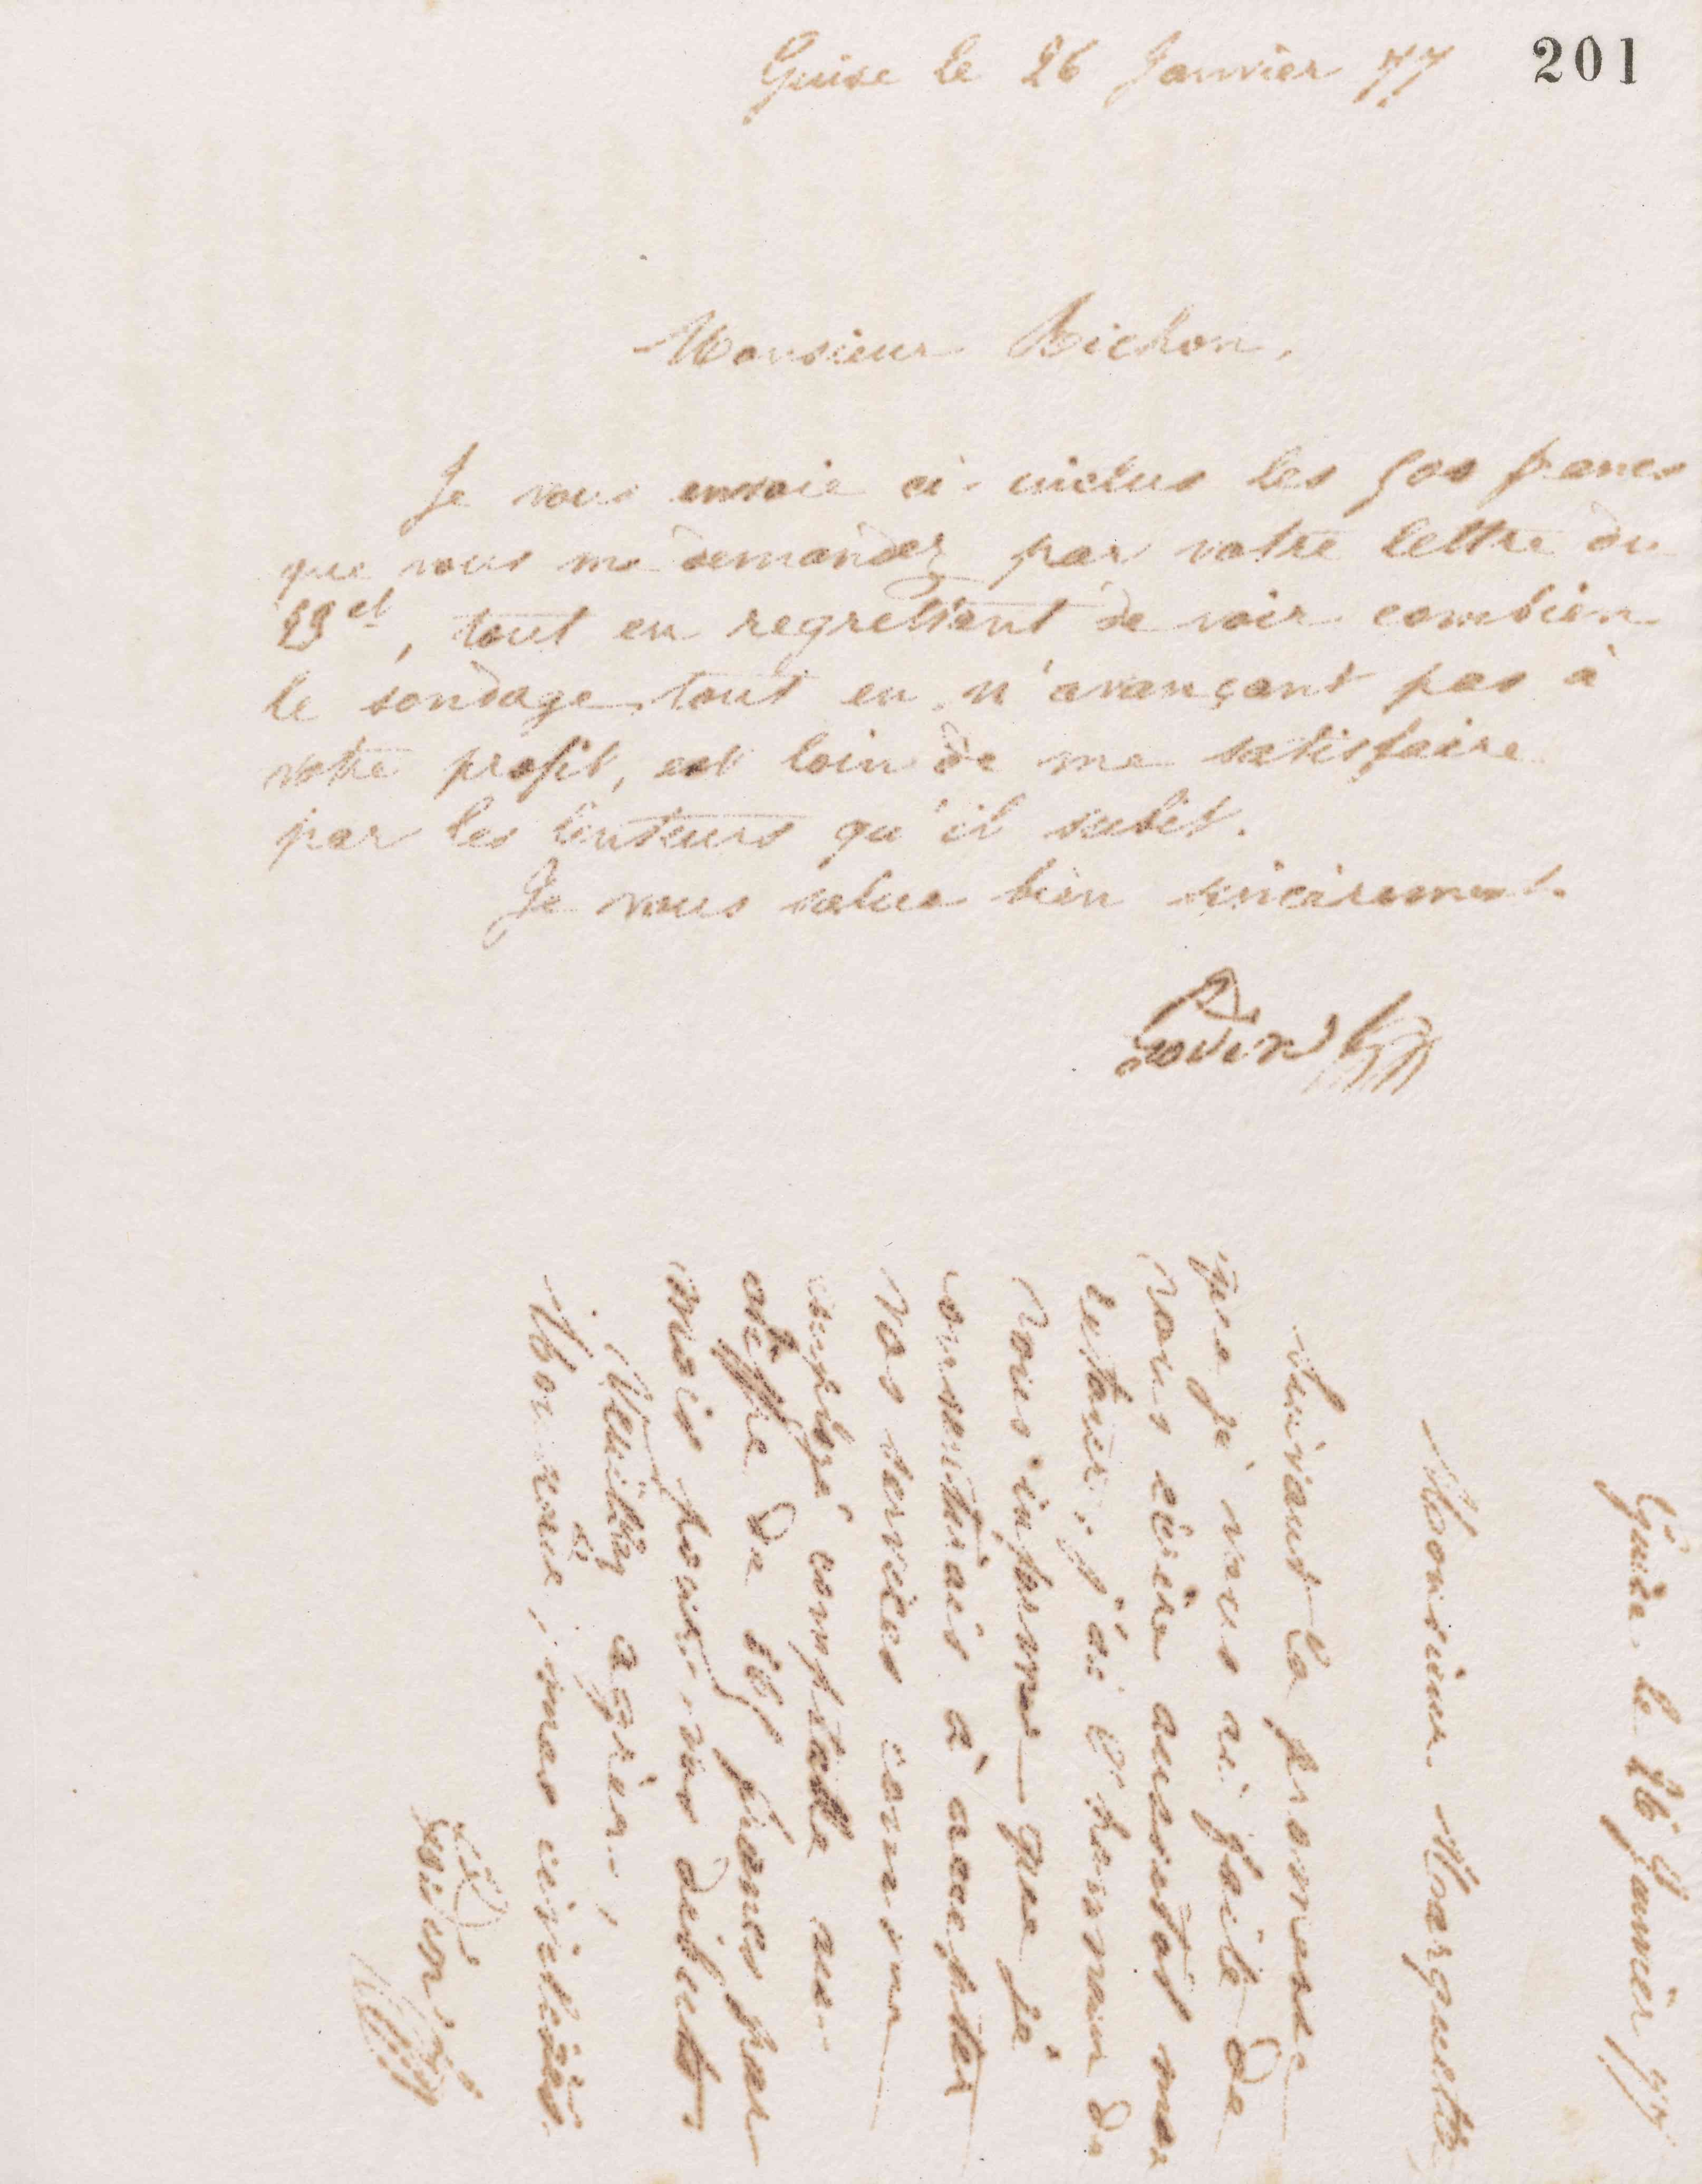 201
Guise le 26 Janvier 77
Monsieur Bichon,
Je vous envoie ci-inclus les 500 francs
que vous me demandez par votre lettre du
23 ct, tout en regrettant de voir combien
le sondage, tout en n'avançant pas à
votre profit, est loin de me satisfaire
par les lenteurs qu'il subit.
Je vous salue bien sincèrement.
Godin
Guise le 26 Janvier 77
Monsieur Marquette
Suivant la promesse
que je vous ai faite de
vous écrire aussitôt mon
retour; j'ai l'honneur de
vous informer que je
consentirais à accepter
vos services comme
employé comptable au
chiffre de francs par
mois pour vos débuts
Veuillez agréer,
Monsieur, mes civilités.
Godin